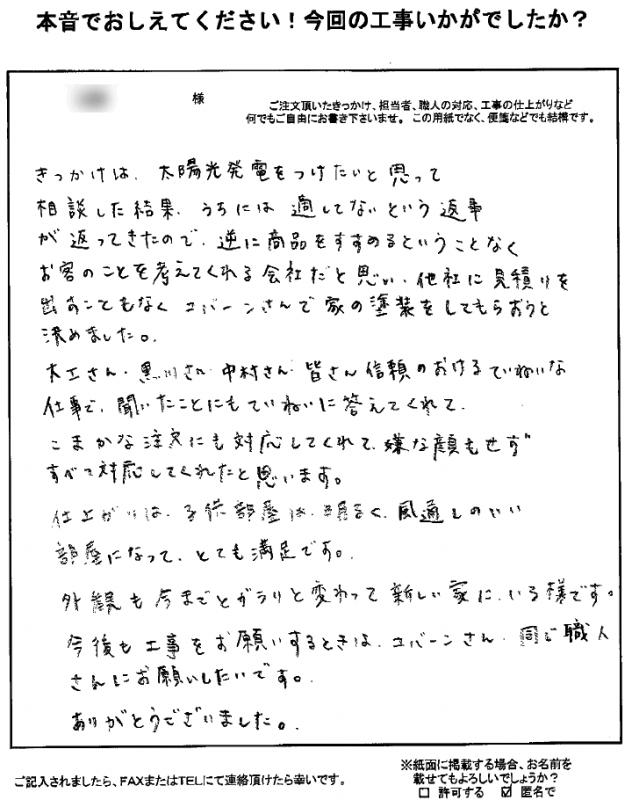 本音でおしえてください！今回の工事いかがでしたか？
様
ご注文頂いたきっかけ、担当者、職人の対応、工事の仕上がりなど
何でもご自由にお書き下さいませ。この用紙でなく、便箋などでも結構です。
きっかけは、太陽光発電をつけたいと思って
相談した結果、うちには適してないという返事
が返ってきたので、逆に商品をすすめるということなく
お客のことを考えてくれる会社だと思い、他社に見積りを
出すこともなくエバーンさんで家の塗装をしてもらおうと
決めました。
大工さん・黒川さん・中村さん・皆さん信頼のおけるていねいな
仕事で、聞いたことにもていねいに答えてくれて、
こまかな注文にも対応してくれて、嫌な顔もせず
すべて対応してくれたと思います。
仕上がりは、子供部屋は、明るく、風通しのいい
部屋になって、とても満足です。
外観も今までとガラリと変わって新しい家に、いる様です。
今後も工事をお願いするときは、エバーンさん、同じ職人
さんにお願いしたいです。
ありがとうございました。
ご記入されましたら、FAXまたはTELにて連絡頂けたら幸いです。
※紙面に掲載する場合、お名前を
載せてもよろしいでしょうか？
□ 許可する ☑ 匿名で